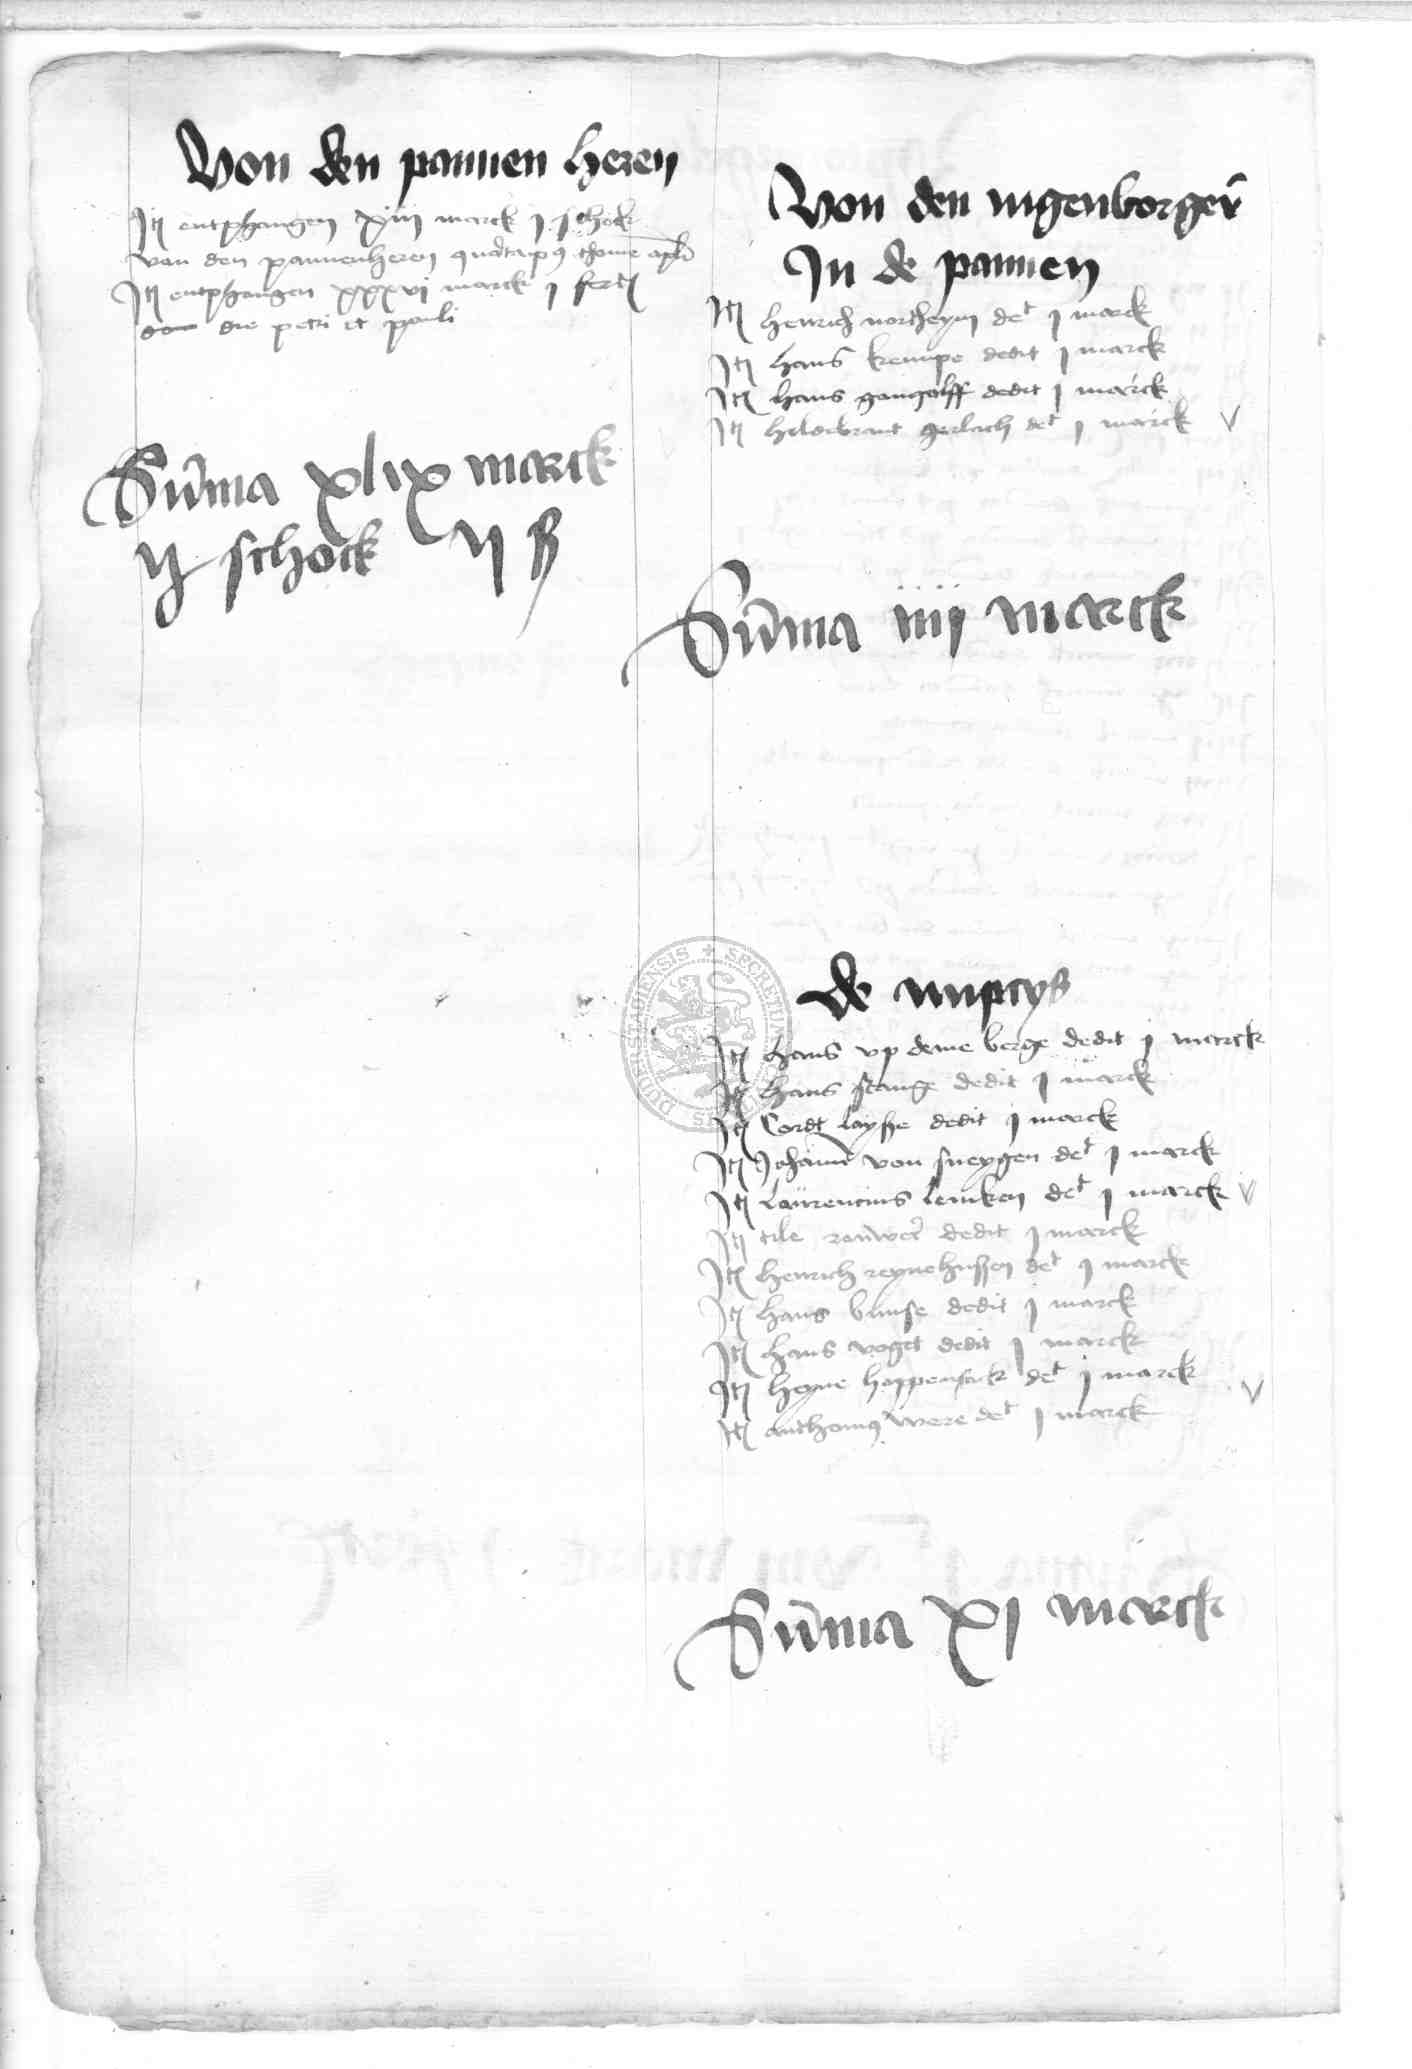 Von den pannen heren
Itẽ entphangen xiij marck j schock
van den pannenheren thome apli
Itẽ entphangen xxxvj marck j fert
die petri et pauli
Sũma xlix marck
ij schock ij ß
Von den nigenborgeͬ
In de pannen
Itẽ henrich northeym deͭ j marck
Itẽ hans krempe dedit j marck
Itẽ hans gangolff dedit j marck
Itẽ hildebrant gerlach deͭ j marck
Sũma iiij marck
de nupcijs
Itẽ hans vp deme berge dedit j marck
Itẽ hans stange dedit j marck
Itẽ Cordt dedit j marck
Itẽ Johañ von sneygen deͭ j marck
Itẽ laurencius lemken deͭ j marck
Itẽ tile dedit j marck
Itẽ henrich reynehussen deͭ j marck
Itẽ hans bunse dedit j marck
Itẽ hans voget dedit j marck
Itẽ heyne hoppensack deͭ j marck
Itẽ anthonius were deͭ j marck
Sũma xj marck